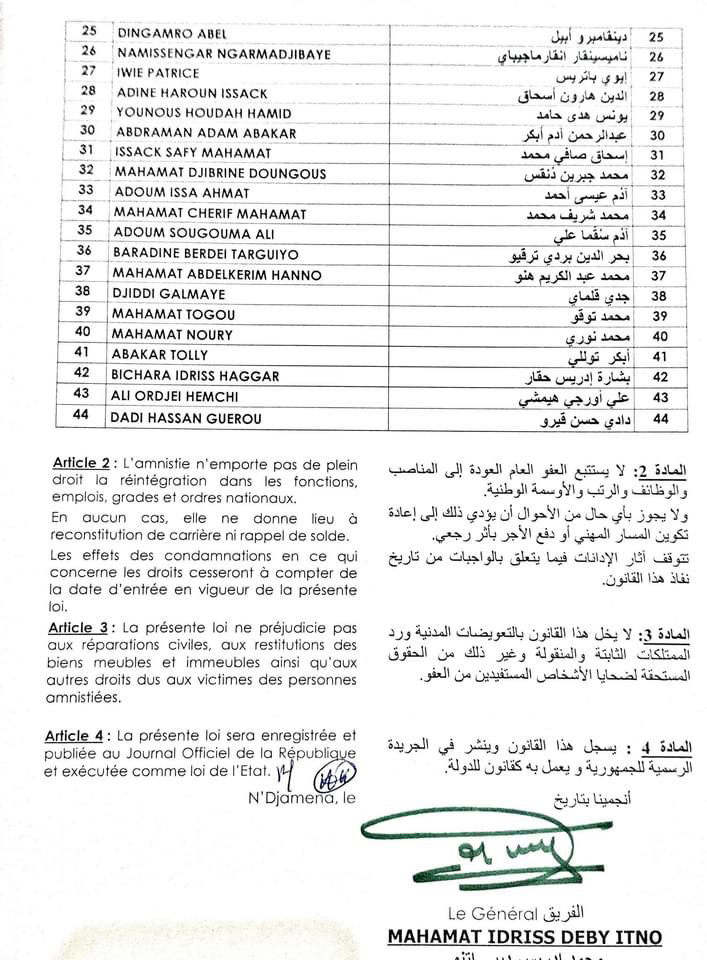 25 DINGAMRO ABEL دينقامبرو أبيل 25
26 NAMISSENGAR NGARMADJIBAYE ناميسينقار انقارماجيباي 26
27 IWIE PATRICE إيوي باتريس 27
28 ADINE HAROUN ISSACK الدين هارون أسحاق 28
29 YOUNOUS HOUDAH HAMID يونس هدى حامد 29
30 ABDRAMAN ADAM ABAKAR عبدالرحمن أدم أبكر 30
31 ISSACK SAFY MAHAMAT إسحاق صافي محمد 31
32 MAHAMAT DJIBRINE DOUNGOUS محمد جبرين دُنقس 32
33 ADOUM ISSA AHMAT آدُم عيسى أحمد 33
34 MAHAMAT CHERIF MAHAMAT محمد شريف محمد 34
35 ADOUM SOUGOUMA ALI آدُم سُقُما علي 35
36 BARADINE BERDEI TARGUIYO بحر الدين بردي ترقيو 36
37 MAHAMAT ABDELKERIM HANNO محمد عبد الكريم هنو 37
38 DJIDDI GALMAYE جدي قلماي 38
39 MAHAMAT TOGOU محمد توقو 39
40 MAHAMAT NOURY محمد نوري 40
41 ABAKAR TOLLY أبكر توللي 41
42 BICHARA IDRISS HAGGAR بشارة إدريس حقار 42
43 ALI ORDJEI HEMCHI علي أورجي هيمشي 43
44 DADI HASSAN GUEROU دادي حسن قيرو 44
Article 2 : L'amnistie n'emporte pas de plein
droit la réintégration dans les fonctions,
emplois, grades et ordres nationaux.
En aucun cas, elle ne donne lieu à
reconstitution de carrière ni rappel de solde.
Les effets des condamnations en ce qui
concerne les droits cesseront à compter de
la date d'entrée en vigueur de la présente
loi.
Article 3 : La présente loi ne préjudicie pas
aux réparations civiles, aux restitutions des
biens meubles et immeubles ainsi qu'aux
autres droits dus aux victimes des personnes
amnistiées.
Article 4 : La présente loi sera enregistrée et
publiée au Journal Officiel de la République
et exécutée comme loi de l'Etat.
N'Djamena, le
المادة 2: لا يستتبع العفو العام العودة إلى المناصب
والوظائف والرتب والأوسمة الوطنية.
ولا يجوز بأي حال من الأحوال أن يؤدي ذلك إلى إعادة
تكوين المسار المهني أو دفع الأجر بأثر رجعي.
تتوقف آثار الإدانات فيما يتعلق بالواجبات من تاريخ
نفاذ هذا القانون.
المادة 3: لا يخل هذا القانون بالتعويضات المدنية ورد
الممتلكات الثابتة والمنقولة وغير ذلك من الحقوق
المستحقة لضحايا الأشخاص المستفيدين من العفو.
المادة 4 : يسجل هذا القانون وينشر في الجريدة
الرسمية للجمهورية و يعمل به كقانون للدولة.
أنجمينا بتاريخ
Le Général الفريق
MAHAMAT IDRISS DEBY ITNO